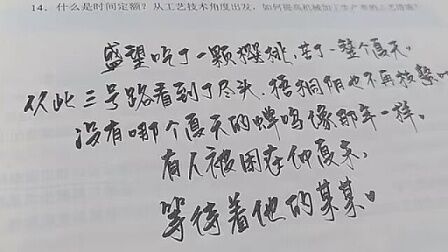 14. 什么是时间定额?从工艺技术角度出发,如何提高机械加工生产率的工艺措施?
盛望吃了一颗樱桃,苦了一整个夏天。
从此三号路看到了尽头,梧桐阴也不再
没有哪个夏天的蝉鸣像那年一样。
有人被困在仲夏末,
等待着他的某某。